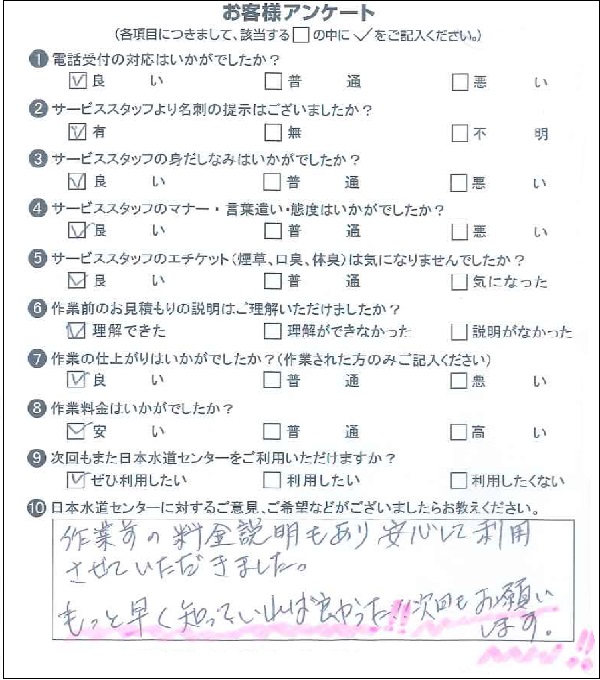 お客様アンケート
(各項目につきまして、該当する□の中に✓をご記入ください。)
❶電話受付の対応はいかがでしたか?
☑良 い □普 通 □悪 い
❷サービススタッフより名刺の提示はございましたか?
☑有 □無 □不 明
❸サービススタッフの身だしなみはいかがでしたか?
☑良 い □普 通 □悪 い
❹サービススタッフのマナー・言葉遣い・態度はいかがでしたか?
☑良 い □普 通 □悪 い
❺サービススタッフのエチケット(煙草、口臭、体臭)は気になりませんでしたか?
☑良 い □普 通 □気になった
❻作業前のお見積もりの説明はご理解いただけましたか?
☑理解できた □理解ができなかった □説明がなかった
❼作業の仕上がりはいかがでしたか?(作業された方のみご記入ください)
☑良 い □普 通 □悪 い
❽作業料金はいかがでしたか?
☑安 い □普 通 □高 い
❾次回もまた日本水道センターをご利用いただけますか?
☑ぜひ利用したい □利用したい □利用したくない
❿日本水道センターに対するご意見、ご希望などがございましたらお教えください。
作業前の料金説明もあり安心して利用
させていただきました。
もっと早く知っていれば良かった!!次回もお願い
します。!!